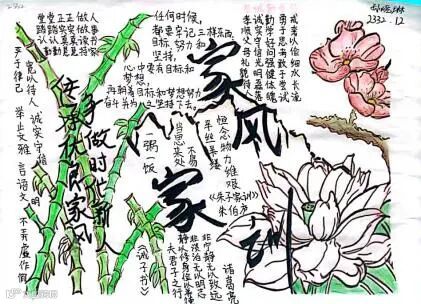 堂堂正正做人
踏踏实实做事
认认真真读书
勤勤恳恳
任何时候,
都要牢记三样东西,
目标、努力和
坚持。
心中要有目标和
梦想,
再朝着目标和梦想努力
奋斗并为之坚持下去。
戒奢以俭细水长流
勇于思考敢于尝试
勤学好问强健体魄
诚实守信光明磊落
孝顺父母礼貌待人
2332.12
严于律己
宽以待人
诚实守信
举止文雅
言语文明
不弄虚作假
传承优良家风
争做时代新人
家风
家训
一粥一饭
当思来处
不易
半丝半缕
恒念物力维艰
《朱子家训》
朱伯庐
《诫子书》
夫君子之行
静以修身俭以养德
非淡泊无以明志
非宁静无以致远
诸葛亮